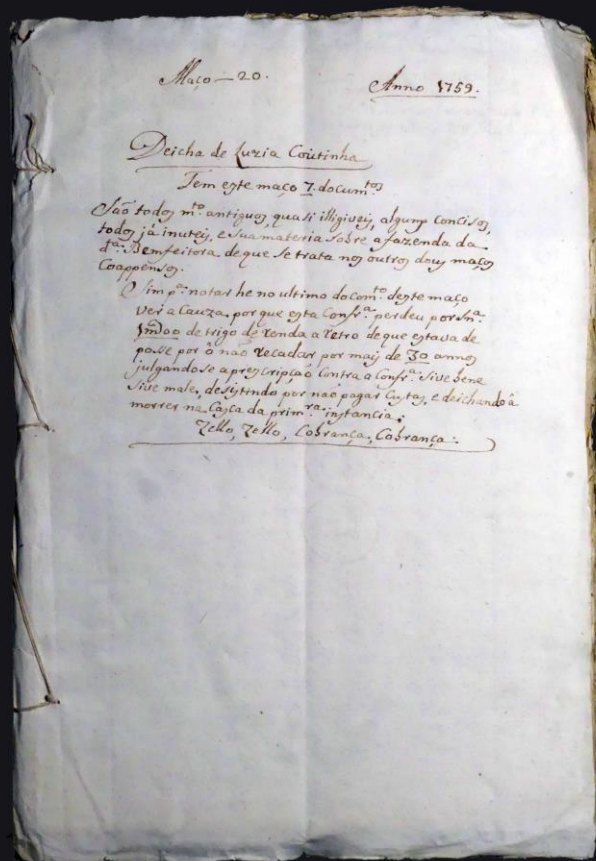 Maço — 20. Anno 1759.
Deicha de Luzia Coutinha
Tem este maço 7. docum.tos
São todos m.to antiguos quasi illigiveis, alguns concisos,
todos já inuteis, e sua materia sobre a fazenda da
d.a Bemfeitora de que se trata nos outros dous maços
Coappensos.
Sim p.a notar he no ultimo docom.to deste maço
ver a Cauza, porque esta Confr.a perdeu por Sn.a
1mo00 de trigo de renda a retro de que estava de
posse por ô não recadar por mais de 30 annos
julgandose a prescripção Contra a Confr.a sive bene
sive male, desistindo por não pagar Custas, e deichando â
morrer na Casca da prim.ra instancia:
Zello, Zello, Cobrança, Cobrança:.